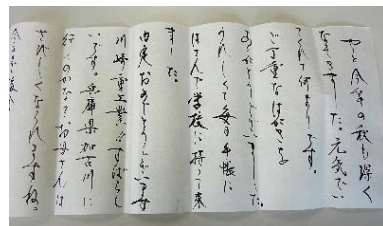 やっと今年の秋も深く
なってきました。元気でい
てくれて何よりです。
ご丁重なはがきを
ありがとうございました。
うれしくて毎日手帳に
はさんで学校に持って来
ました。
内定おめでとうございます
川崎重工業㈱すばらし
いです。兵庫県加古川に
行くのかな?お母さんは
さびしくなられますね。